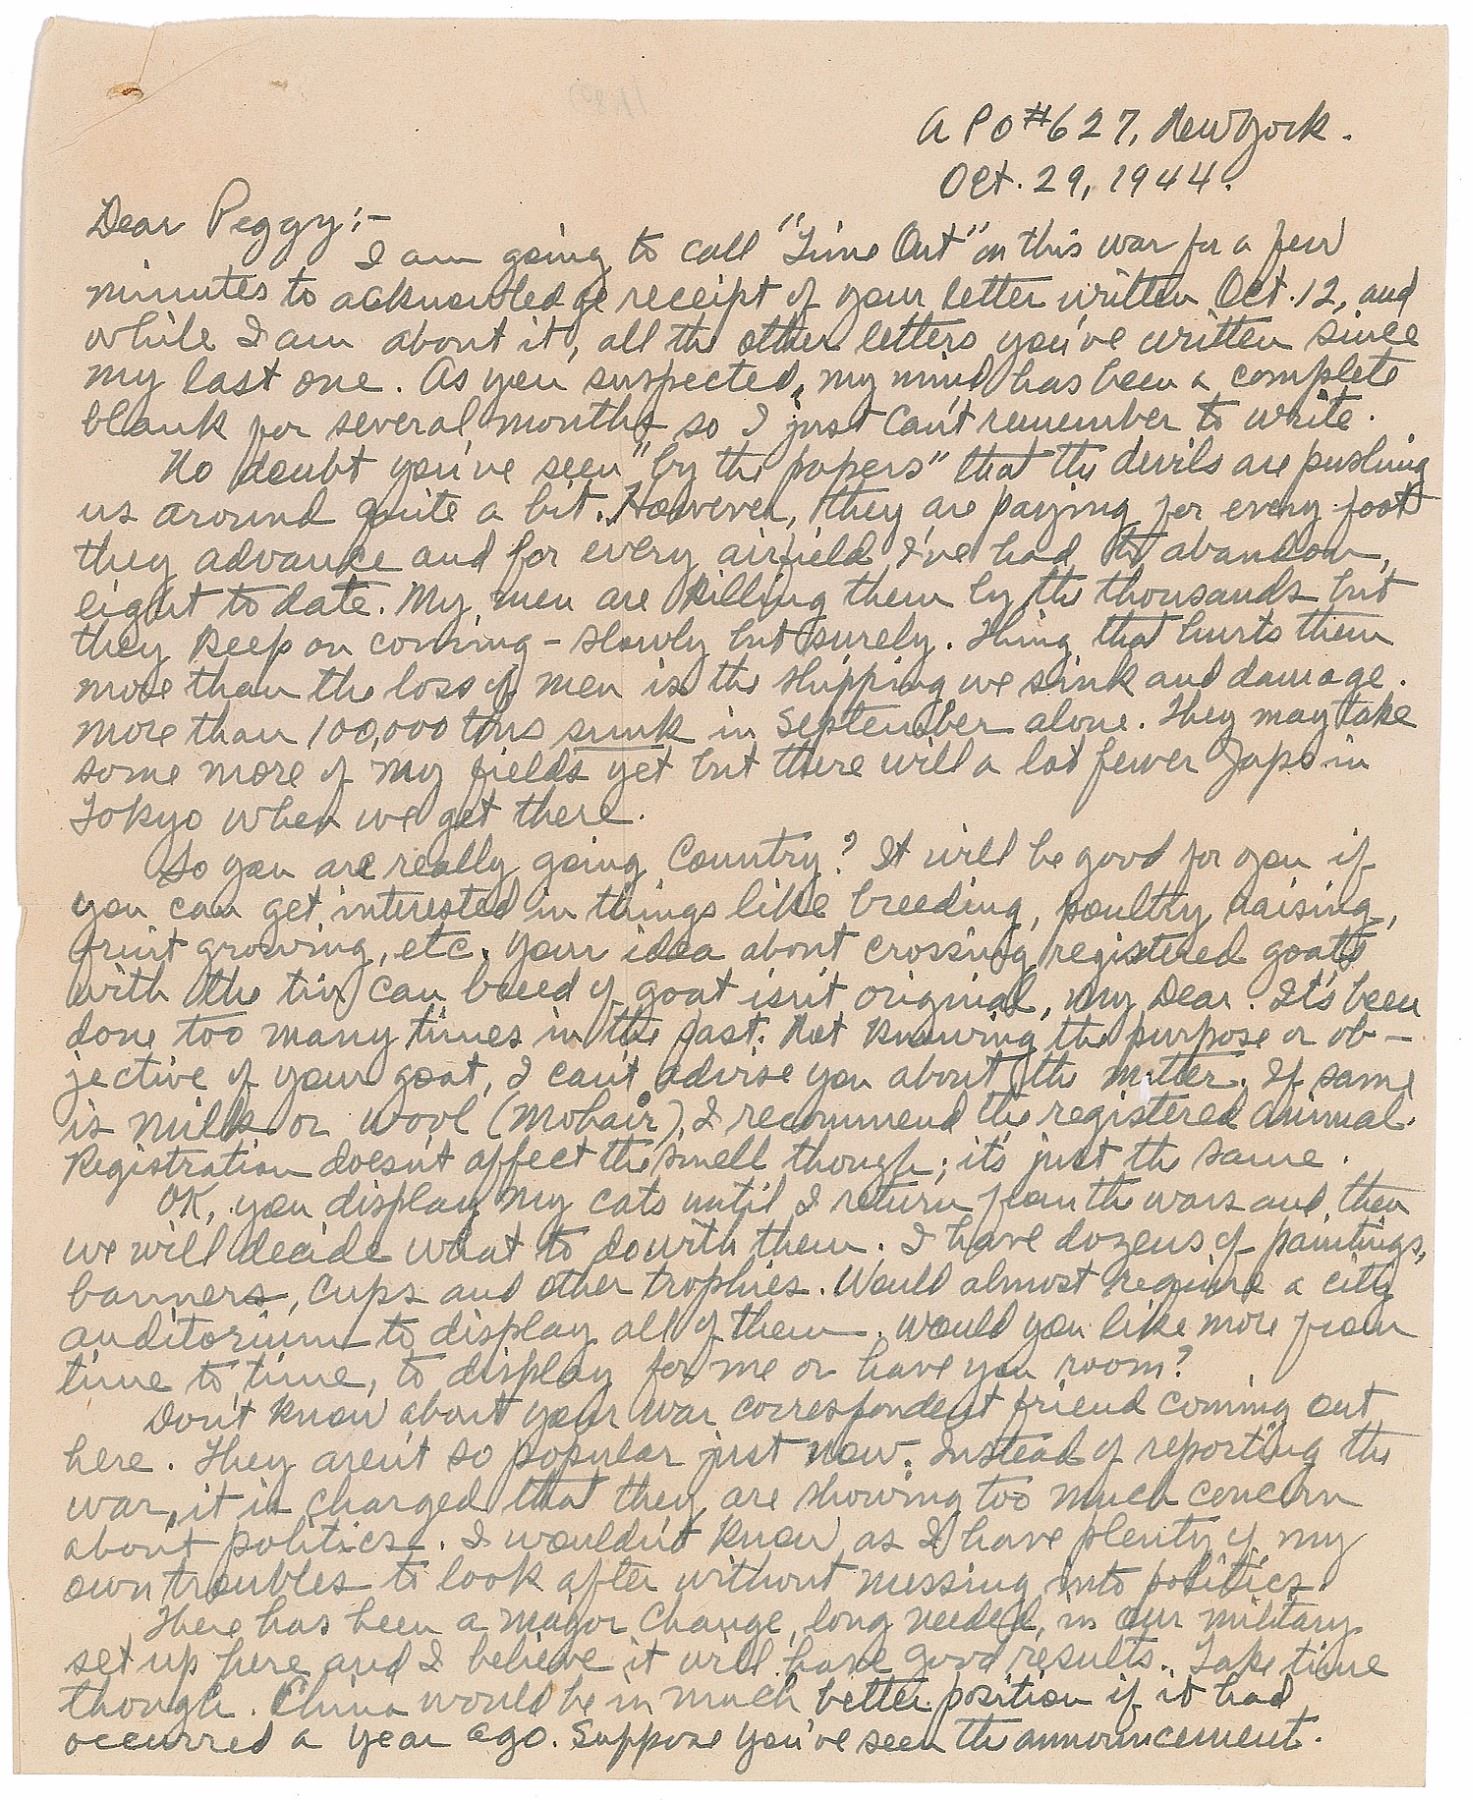 A P O #627, New York.
Oct. 29, 1944.
Dear Peggy:-
I am going to call "Time Out" on this war for a few
minutes to acknowledge receipt of your letter written Oct. 12, and
while I am about it, all the other letters you've written since
my last one. As you suspected, my mind has been a complete
blank for several months so I just can't remember to write.
No doubt you've seen "by the papers" that the devils are pushing
us around quite a bit. However, they are paying for every foot
they advance and for every airfield I've had to abandon,
eight to date. My men are killing them by the thousands but
they keep on coming - slowly but surely. Thing that hurts them
more than the loss of men is the shipping we sink and damage.
More than 100,000 tons sunk in September alone. They may take
some more of my fields yet but there will a lot fewer Japs in
Tokyo when we get there.
So you are really going Country? It will be good for you if
you can get interested in things like breeding, poultry raising,
fruit growing, etc. Your idea about crossing registered goats
with the tin can breed of goat isn't original, my Dear. It's been
done too many times in the past. Not knowing the purpose or ob-
jective of your goat, I can't advise you about the matter. If same
is milk or wool (Mohair), I recommend the registered animal.
Registration doesn't affect the smell though; it's just the same.
OK, you display my cats until I return from the wars and then
we will decide what to do with them. I have dozens of paintings,
banners, cups and other trophies. Would almost require a city
auditorium to display all of them. Would you like more from
time to time, to display for me or have you room?
Don't know about your war correspondent friend coming out
here. They aren't so popular just now. Instead of reporting the
war, it is charged that they are showing too much concern
about politics. I wouldn't know as I have plenty of my
own troubles to look after without messing into politics.
There has been a major change, long needed, in our military
set up here and I believe it will have good results. Take time
though. China would be in much better position if it had
occurred a year ago. Suppose you've seen the announcement.